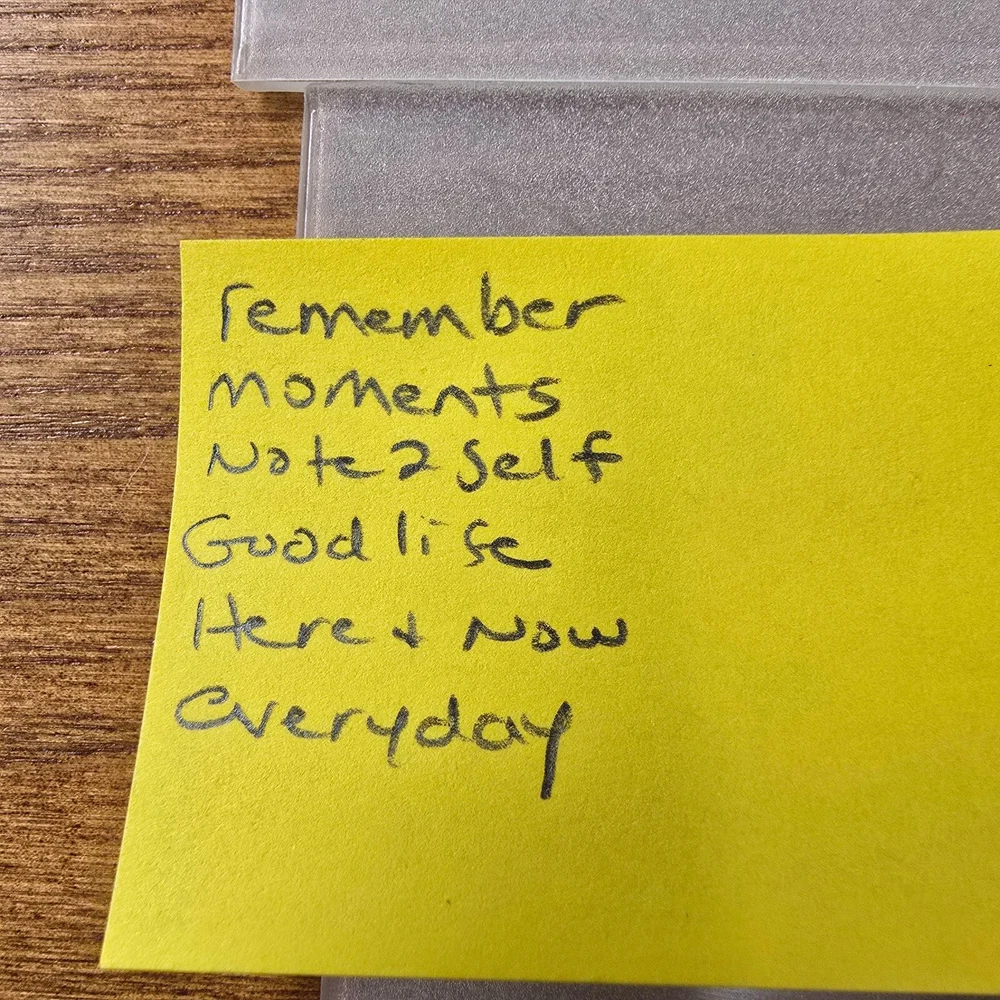 remember
moments
Note 2 Self
Good life
Here + Now
everyday